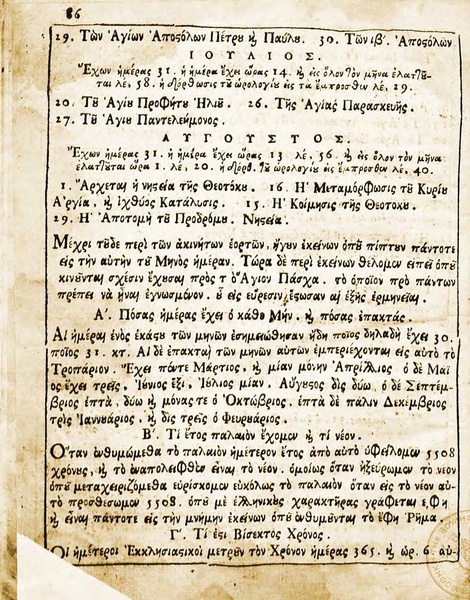 86
29. Τῶν Ἁγίων Ἀποςόλων Πέτρου ϗ Παύλου. 30. Τῶν ιβ΄. Ἀποςόλων
ΙΟΥΛΙΟΣ.
Ἔχων ἡμέρας 31. ἡ ἡμέρα ἔχει ὥρας 14. ϗ εἰς ὅλον τὸν μῆνα ἐλαττȣ͂-
ται λέ, 58. ἡ διόρθωσις τȣ͂ ὡρολογίȣ εἰς τὰ ἔμπροσθεν λέ, 29.
20. Τȣ͂ Ἁγίȣ Προφήτȣ Ἠλιȣ͂. 26. Τῆς Ἁγίας Παρασκευῆς.
27. Τȣ͂ Ἁγίȣ Παντελεήμονος.
ΑΥΓΟΥΣΤΟΣ.
Ἔχων ἡμέρας 31. ἡ ἡμέρα ἔχει ὥρας 13 λέ, 56. ϗ εἰς ὅλον τὸν μῆνα
ἐλαττȣ͂ται ὥρα 1. λέ, 20. ἡ διορθ. τȣ͂ ὡρολογίȣ εἰς ἔμπροσθεν λέ, 40.
1. Ἄρχεται ἡ νηςεία τῆς Θεοτόκȣ. 16. Ἡ Μεταμόρφωσις τȣ͂ Κυρίȣ
Ἀργία, ϗ ἰχθύος Κατάλυσις. 15. Ἡ Κοίμησις τῆς Θεοτόκȣ.
29. Ἡ Ἀποτομὴ τȣ͂ Προδρόμȣ. Νηςεία.
Μέχρι τȣ͂δε περὶ τῶν ἀκινήτων ἑορτῶν, ἤγȣν ἐκείνων ὁπȣ͂ πίπτȣν πάντοτε
εἰς τὴν αὐτὴν τȣ͂ Μηνὸς ἡμέραν. Τώρα δὲ περὶ ἐκείνων θέλομεν εἰπεῖ ὁπȣ͂
κινȣ͂νται σχέσιν ἔχȣσαι πρὸς τὸ Ἅγιον Πάσχα. τὸ ὁποῖον πρὸ πάντων
πρέπει νὰ ἦναι ἐγνωσμένον. ȣ͂ εἰς εὕρεσιν ἔςωσαν αἱ ἑξῆς ἑρμηνεῖαι.
Α΄. Πόσας ἡμέρας ἔχει ὁ κάθε Μήν. ϗ πόσας ἐπακτάς.
Αἱ ἡμέραι ἑνὸς ἑκάςȣ τῶν μηνῶν ἐσημειώθησαν ἤδη ποῖος δηλαδὴ ἔχει 30.
ποῖος 31. κτ. Αἱ δὲ ἐπακταὶ τῶν μηνῶν αὐτῶν ἐμπεριέχονται εἰς αὐτὸ τὸ
Τροπάριον. Ἔχει πέντε Μάρτιος, ϗ μίαν μόνην Ἀπρίλλιος ὁ δὲ Μάϊ
ος ἔχει τρεῖς. Ἰȣ́νιος ἕξι. Ἰȣ́λιος μίαν. Αὔγȣςος δὶς δύω. ὁ δὲ Σεπτέμ-
βριος ἑπτὰ, δύω ϗ μόνας τε ὁ Ὀκτώβριος. ἑπτὰ δὲ πάλιν Δεκέμβριος
τρεῖς Ἰαννȣάριος, ϗ δὶς τρεῖς ὁ Φευρȣάριος.
Β΄. Τί ἔτος παλαιὸν ἔχομεν ϗ τί νέον.
Ὅταν ἐνθυμώμεθα τὸ παλαιὸν ἡμέτερον ἔτος ἀπὸ αὐτὸ ὑφείλομεν 5508
χρόνȣς, ϗ τὸ ἀναπολειφθὲν εἶναι τὸ νέον. ὁμοίως ὅταν ἠξεύρωμεν τὸ νέον
ὁπȣ͂ μεταχειριζόμεθα εὑρίσκομεν εὐκόλως τὸ παλαιὸν ὅταν εἰς τὸ νέον αὐ-
τὸ προσθέσωμεν 5508. ὁπȣ͂ μὲ ἑλληνικȣ̀ς χαρακτῆρας γράφεται ͵εφη
ϗ εἶναι πάντοτε εἰς τὴν μνήμην ἐκείνων ὁπȣ͂ ἐνθυμȣ͂νται τὸ ἔφη Ῥῆμα.
Γ΄. Τί ἐςι Βίσεκτος Χρόνος.
Οἱ ἡμέτεροι Ἐκκλησιαςικοὶ μετρȣ͂ν τὸν Χρόνον ἡμέρας 365. ϗ ὥρ. 6 αὐ-